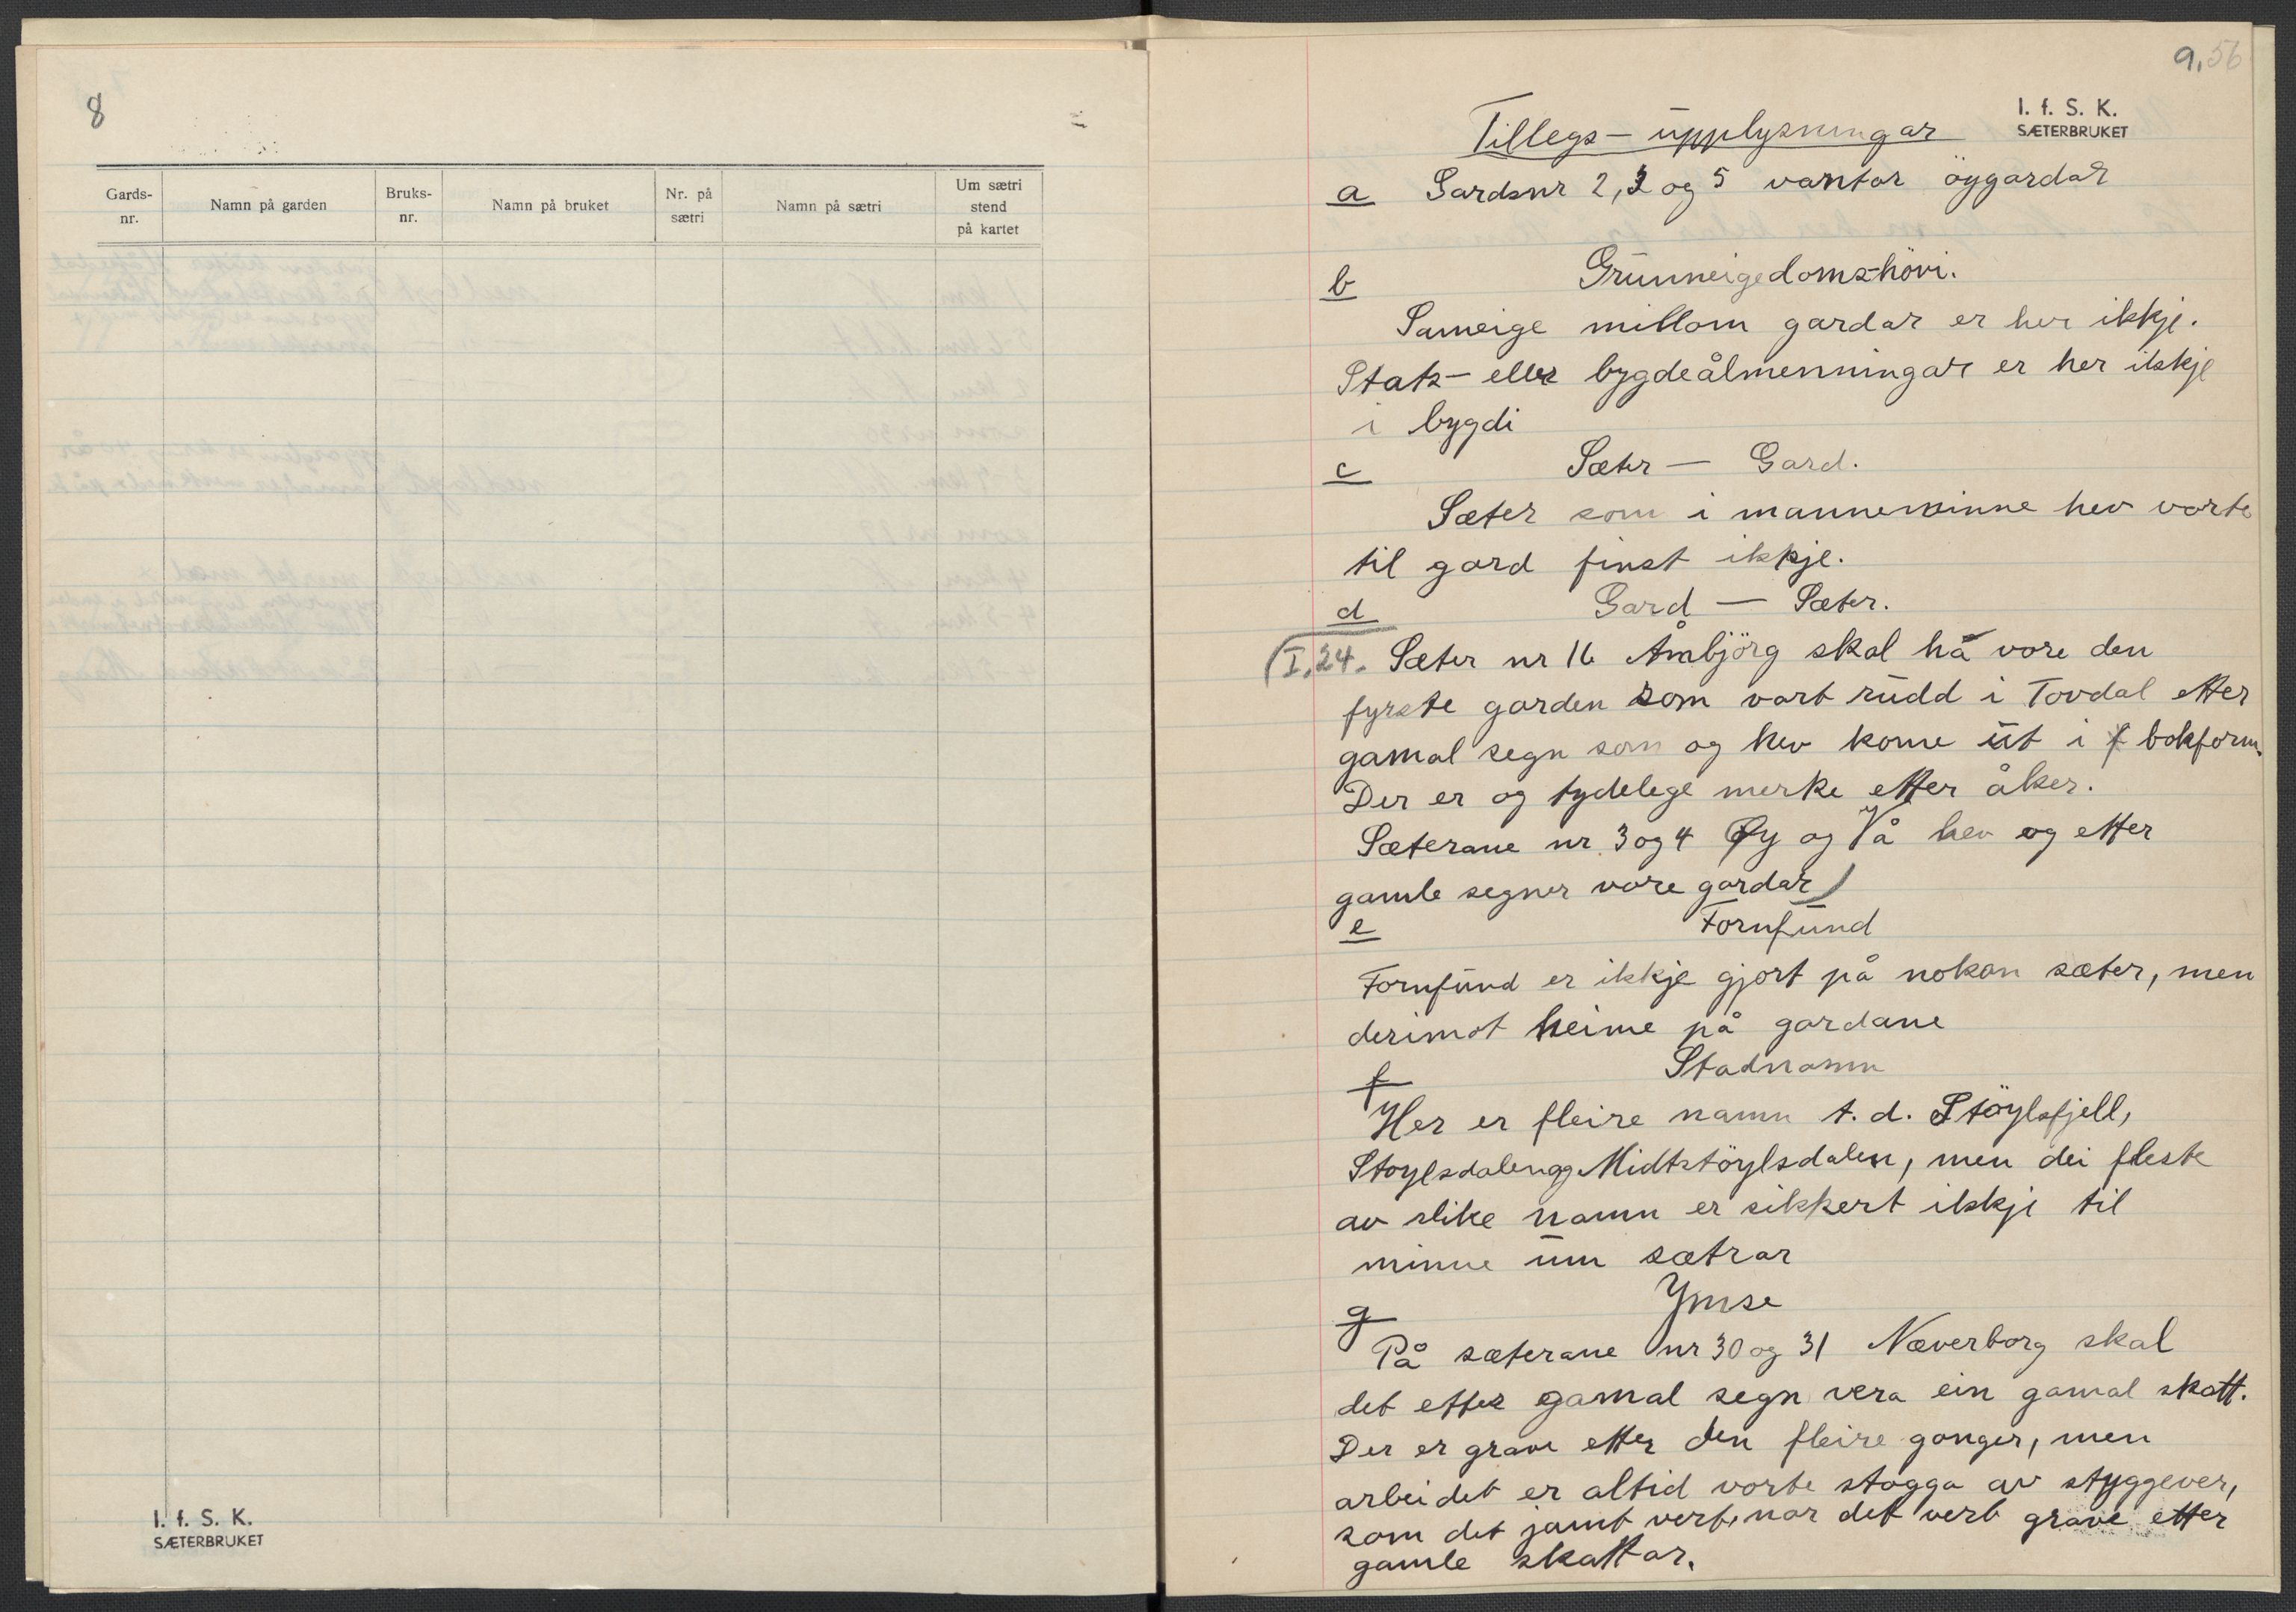 8
Gards-
nr.
Namn på garden
Bruks-
nr.
Namn på bruket
Nr. på
sætri
Namn på sætri
Um sætri
stend
på kartet
I. f. S. K.
SÆTERBRUKET
9. 56
I. f. S. K.
SÆTERBRUKET
Tillegs-upplysningar
a Gardsnr 2, 3 og 5 vantar öygardar
b Grunneigedomshövi.
Sameige millom gardar er her ikkje.
Stats- eller bygdeålmenningar er her ikkje
i bygdi
c Sæter - Gard.
Sæter som i manneminne hev vorte
til gard finst ikkje.
d Gard - Sæter.
(I.24. Sæter nr 16 Åmbjörg skal ha vore den
fyrste garden som vart rudd i Tovdal etter
gamal segn som og hev kome ut i bokform.
Der er og tydelege merke etter åker.
Sæterane nr. 3 og 4 Øy og Vå hev og etter
gamle segner vore gardar)
e Fornfund
Fornfund er ikkje gjort på nokon sæter, men
derimot heime på gardane
f Stadnamn
Her er fleire namn t. d. Stöylsfjell,
Stoylsdalen og Midtstöylsdalen, men dei fleste
av slike namn er sikkert ikkje til
minne um sætrar
g Ymse
På sæterane nr 30 og 31 Næverborg skal
det etter gamal segn vera ein gamal skatt.
Der er grave etter den fleire gonger, men
arbeidet er altid vorte stogga av styggever,
som det jamt vert, nar det vert grave etter
gamle skattar.